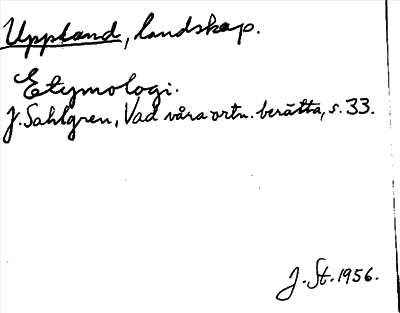 Uppland, landskap.
Etymologi.
J. Sahlgren, Vad våra ortn. berätta, s. 33.
J. St. 1956.